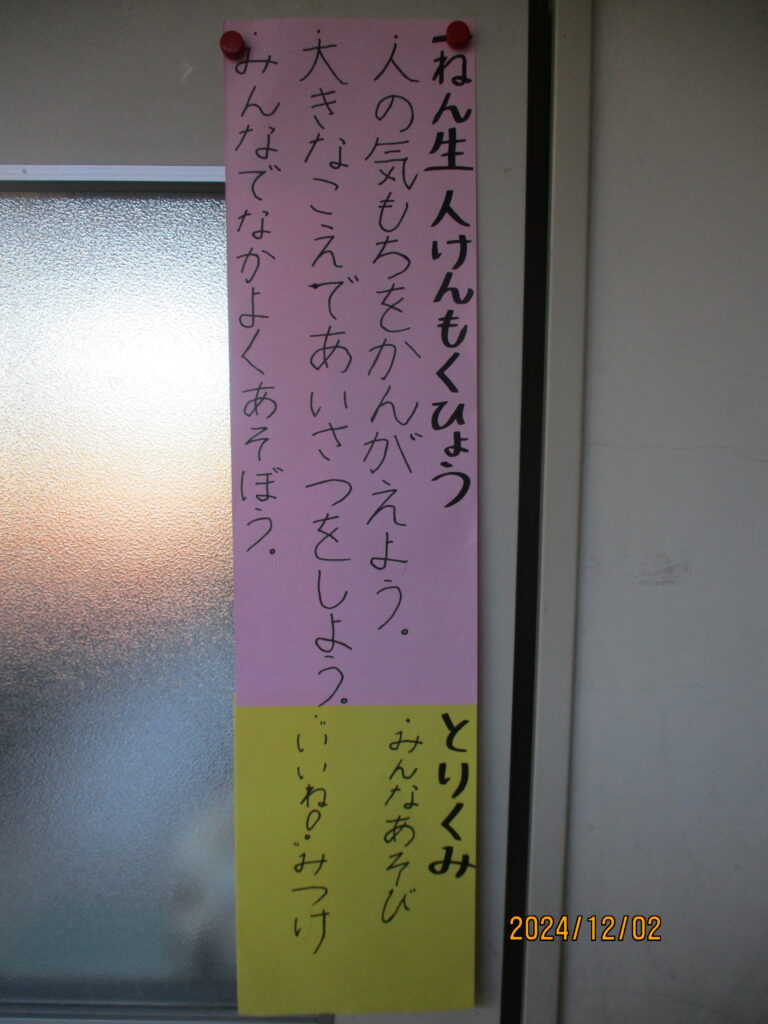 一ねん生 人けんもくひょう
・人の気もちをかんがえよう。
・大きなこえであいさつをしよう。
・みんなでなかよくあそぼう。
とりくみ
・みんなあそび
・"いいね!"みつけ
2024/12/02